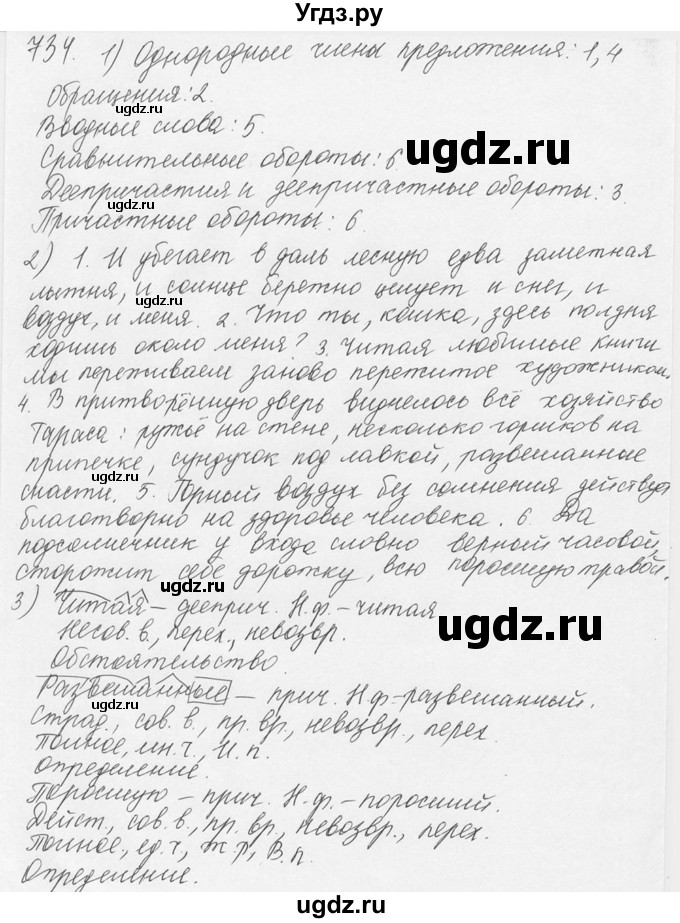 Угдз.ру
734. 1) Однородные члены предложения: 1, 4
Обращения: 2.
Вводные слова: 5.
Сравнительные обороты: 6.
Деепричастия и деепричастные обороты: 3.
Причастные обороты: 6.
2) 1. И убегает в даль лесную едва заметная
лыжня, и солнце бережно целует и снег, и
воздух, и меня. 2. Что ты, кошка, здесь полдня
ходишь около меня? 3. Читая любимые книги
мы переживаем заново пережитое художником.
4. В притворённую дверь виднелось всё хозяйство
Тараса: ружьё на стене, несколько горшков на
припечке, сундучок под лавкой, развешанные
снасти. 5. Горный воздух без сомнения действует
благотворно на здоровье человека. 6. Да
подсолнечник у входа словно верный часовой,
сторожит себе дорожку, всю поросшую травой.
3) Читая – дееприч. Н.ф. – читая
Несов.в., перех., невозвр.
Обстоятельство
Развешанные – прич. Н.ф – развешанный.
Страд., сов.в., пр.вр., невозвр., перех.
Полное, мн.ч., И.п.
Определение.
Поросшую – прич. Н.ф. – поросший.
Дейст., сов.в., пр.вр., невозвр., перех.
Полное, ед.ч, ж.р, В.п.
Определение.
ugdz.ru
ugdz.ru
ugdz.ru
ugdz.ru
ugdz.ru
ugdz.ru
ugdz.ru
ugdz.ru
ugdz.ru